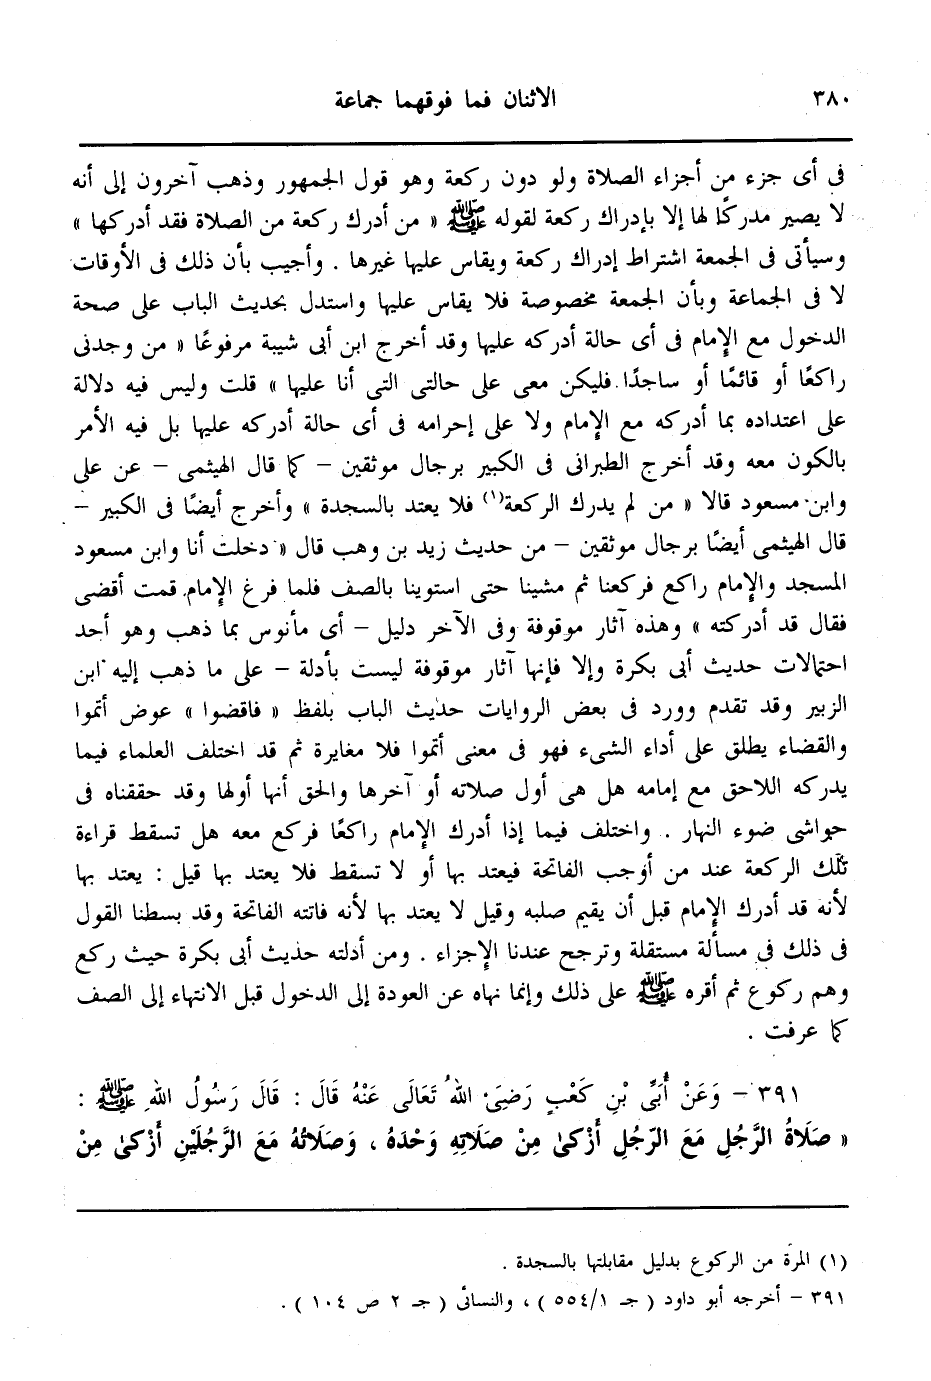 ٣٨٠
الاثنان فما فوقهما جماعة
فى أى جزء من أجزاء الصلاة ولو دون ركعة وهو قول الجمهور وذهب آخرون إلى أنه
لا يصير مدركًا لها إلا بإدراك ركعة لقوله ﷺ « من أدرك ركعة من الصلاة فقد أدركها »
وسيأتى فى الجمعة اشتراط إدراك ركعة ويقاس عليها غيرها . وأجيب بأن ذلك فى الأوقات
لا فى الجماعة وبأن الجمعة مخصوصة فلا يقاس عليها واستدل بحديث الباب على صحة
الدخول مع الإمام فى أى حالة أدركه عليها وقد أخرج ابن أبى شيبة مرفوعًا « من وجدنى
راكعًا أو قائمًا أو ساجدًا فليكن معى على حالتى التى أنا عليها » قلت وليس فيه دلالة
على اعتداده بما أدركه مع الإمام ولا على إحرامه فى أى حالة أدركه عليها بل فيه الأمر
بالكون معه وقد أخرج الطبرانى فى الكبير برجال موثقين – كما قال الهيثمى – عن على
وابن مسعود قالا « من لم يدرك الركعة(١) فلا يعتد بالسجدة » وأخرج أيضًا فى الكبير –
قال الهيثمى أيضًا برجال موثقين – من حديث زيد بن وهب قال « دخلت أنا وابن مسعود
المسجد والإمام راكع فركعنا ثم مشينا حتى استوينا بالصف فلما فرغ الإمام قمت أقضى
فقال قد أدركته » وهذه آثار موقوفة وفى الآخر دليل – أى مأنوس بما ذهب وهو أحد
احتمالات حديث أبى بكرة وإلا فإنها آثار موقوفة ليست بأدلة – على ما ذهب إليه ابن
الزبير وقد تقدم وورد فى بعض الروايات حديث الباب بلفظ « فاقضوا » عوض أتموا
والقضاء يطلق على أداء الشىء فهو فى معنى أتموا فلا مغايرة ثم قد اختلف العلماء فيما
يدركه اللاحق مع إمامه هل هى أول صلاته أو آخرها والحق أنها أولها وقد حققناه فى
حواشى ضوء النهار . واختلف فيما إذا أدرك الإمام راكعًا فركع معه هل تسقط قراءة
تلك الركعة عند من أوجب الفاتحة فيعتد بها أو لا تسقط فلا يعتد بها قيل : يعتد بها
لأنه قد أدرك الإمام قبل أن يقيم صلبه وقيل لا يعتد بها لأنه فاتته الفاتحة وقد بسطنا القول
فى ذلك فى مسألة مستقلة وترجح عندنا الإجزاء . ومن أدلته حديث أبى بكرة حيث ركع
وهم ركوع ثم أقره ﷺ على ذلك وإنما نهاه عن العودة إلى الدخول قبل الانتهاء إلى الصف
كما عرفت .
٣٩١ – وَعَنْ أُبَىِّ بْنِ كَعْبٍ رَضِىَ اللهُ تَعَالَى عَنْهُ قَالَ : قَالَ رَسُولُ اللهِ ﷺ :
« صَلَاةُ الرَّجُلِ مَعَ الرَّجُلِ أَزْكىٰ مِنْ صَلَاتِهِ وَحْدَهُ ، وَصَلَاتُهُ مَعَ الرَّجُلَيْنِ أَزْكىٰ مِنْ
(١) المرة من الركوع بدليل مقابلتها بالسجدة .
٣٩١ – أخرجه أبو داود ( جـ ٥٥٤/١ ) ، والنسائى ( جـ ٢ ص ١٠٤ ) .